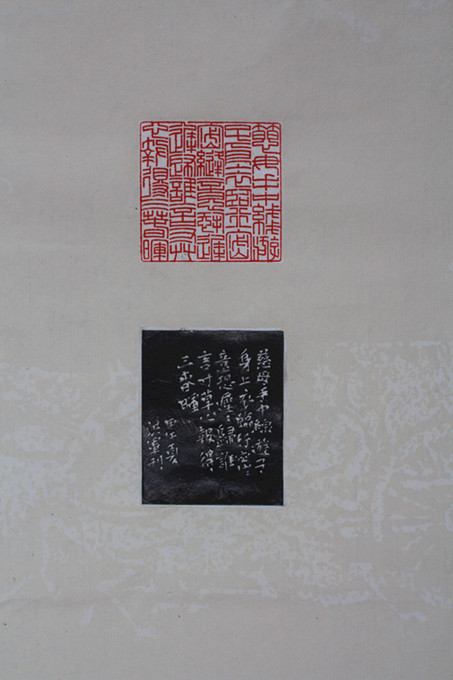 慈母手中線遊
子身上衣臨行密
密縫意恐遲
遲歸誰言寸艸
心報得三春暉
慈母手中線遊子
身上衣臨行密〻
意恐遲〻歸誰
言寸草心報得
三春暉
夏
刊